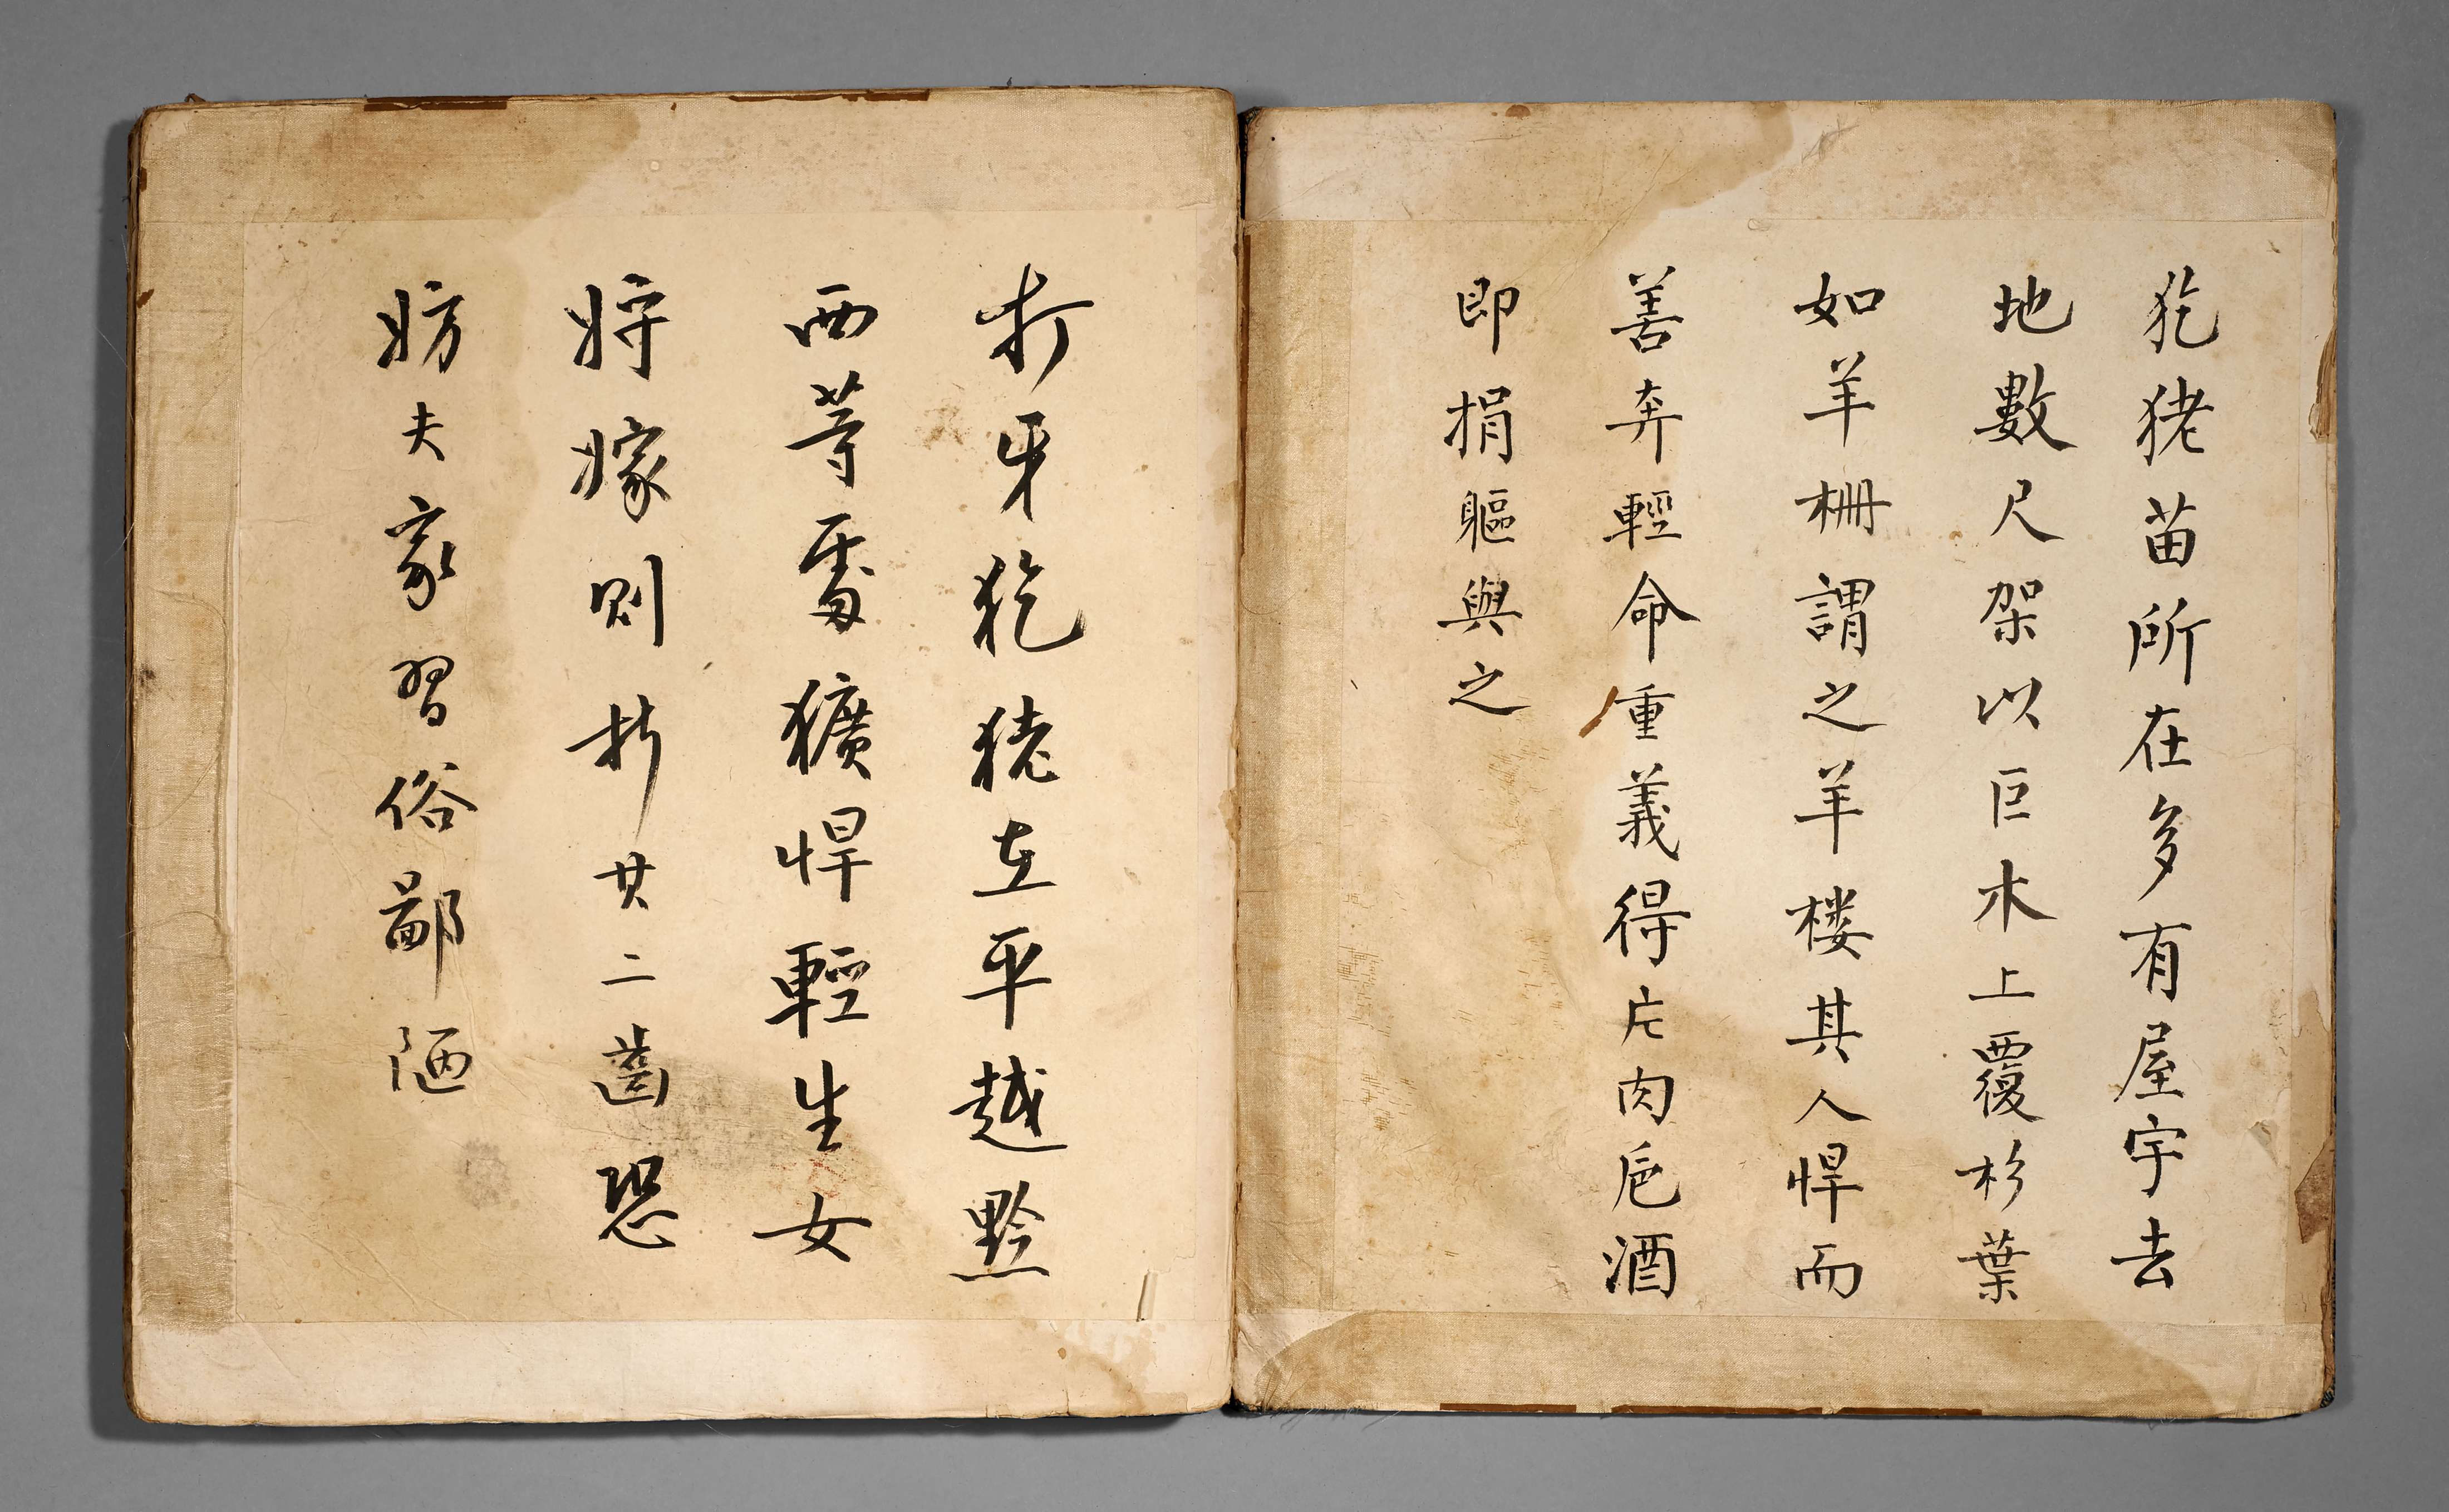 犵狫苗所在多有屋宇去
地數尺架以巨木上覆杉葉
如羊柵謂之羊楼其人悍而
善奔輕命重義得片肉巵酒
即捐軀與之
打牙犵狫在平越黔
西等處獷悍輕生女
将嫁則折其二齒恐
妨夫家習俗鄙陋